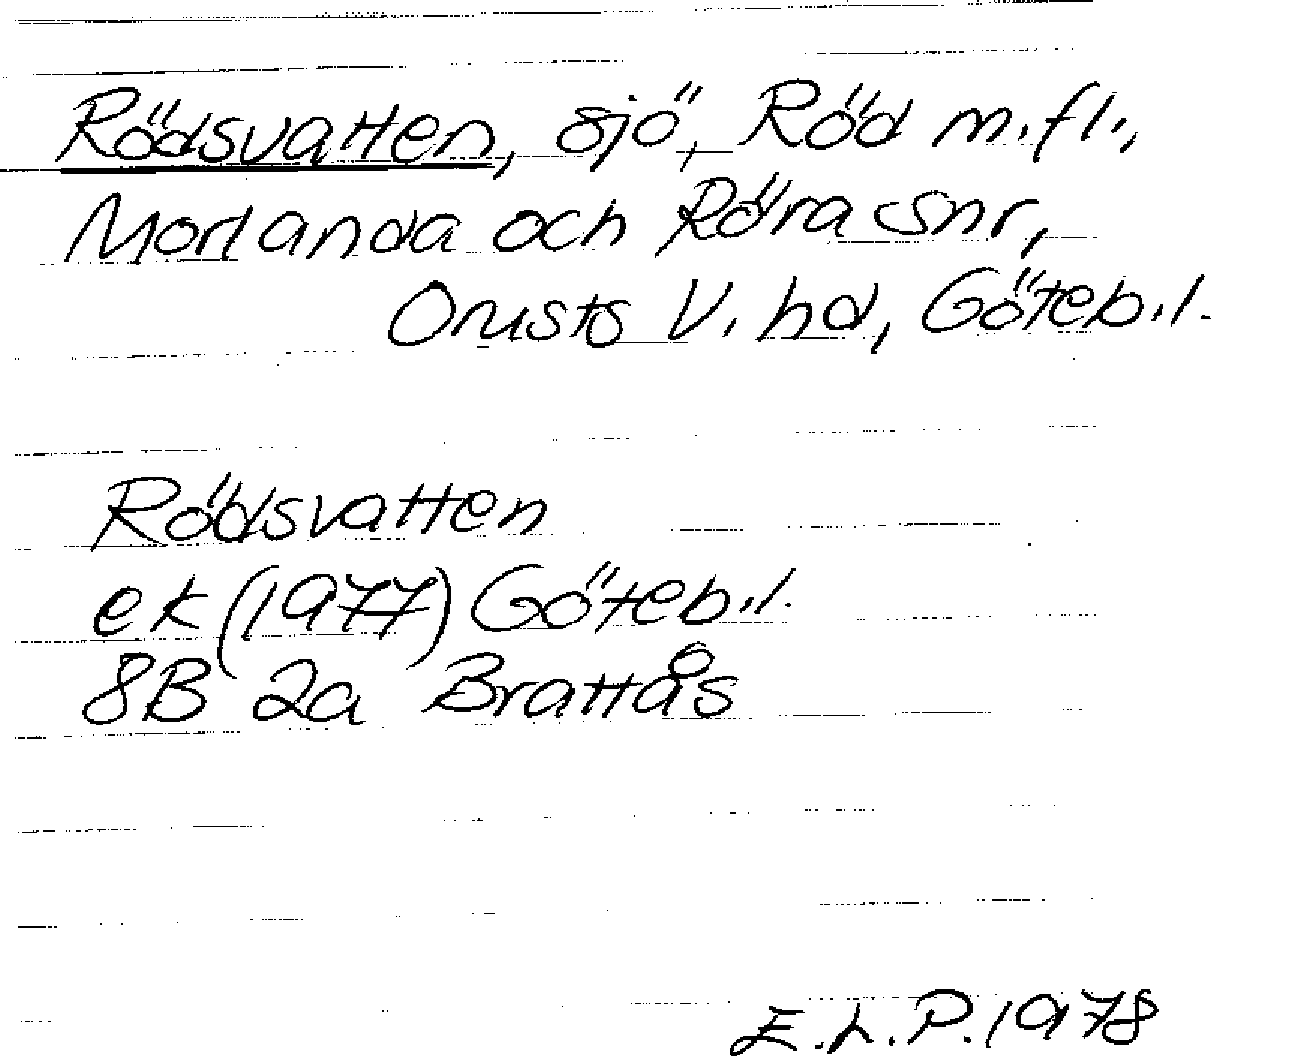 Rödsvatten, sjö, Röd m.fl.,
Morlanda och Röra snr,
Orusts V. hd, Göteb.l.
Rödsvatten
ek (1977) Göteb.l.
8B 2a Brattås
E.L.P. 1978